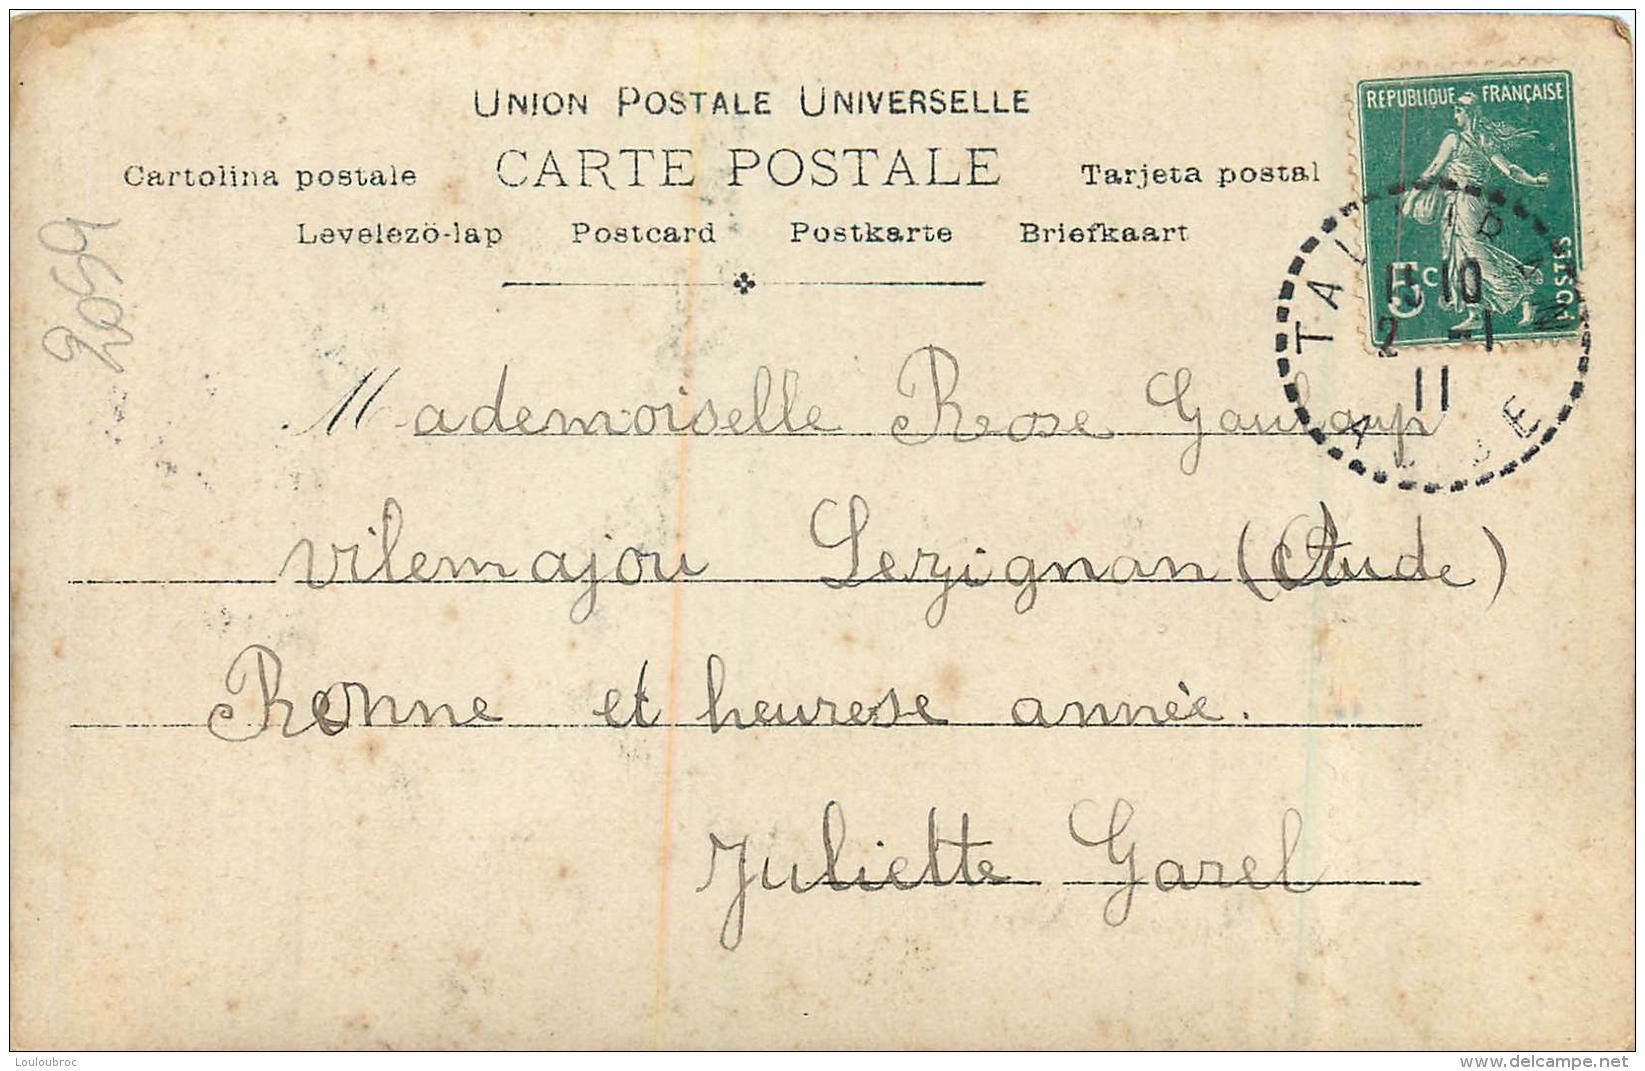 UNION POSTALE UNIVERSELLE
Cartolina postale CARTE POSTALE Tarjeta postal
Levelező-lap Postcard Postkarte Briefkaart
REPUBLIQUE FRANÇAISE
5c POSTES
11 10
2 -1
11
2059
Mademoiselle Rose
Vilemajou Lezignan (Aude)
Bonne et heurese année.
Juliette Garel
Louloubroc
www.delcampe.net